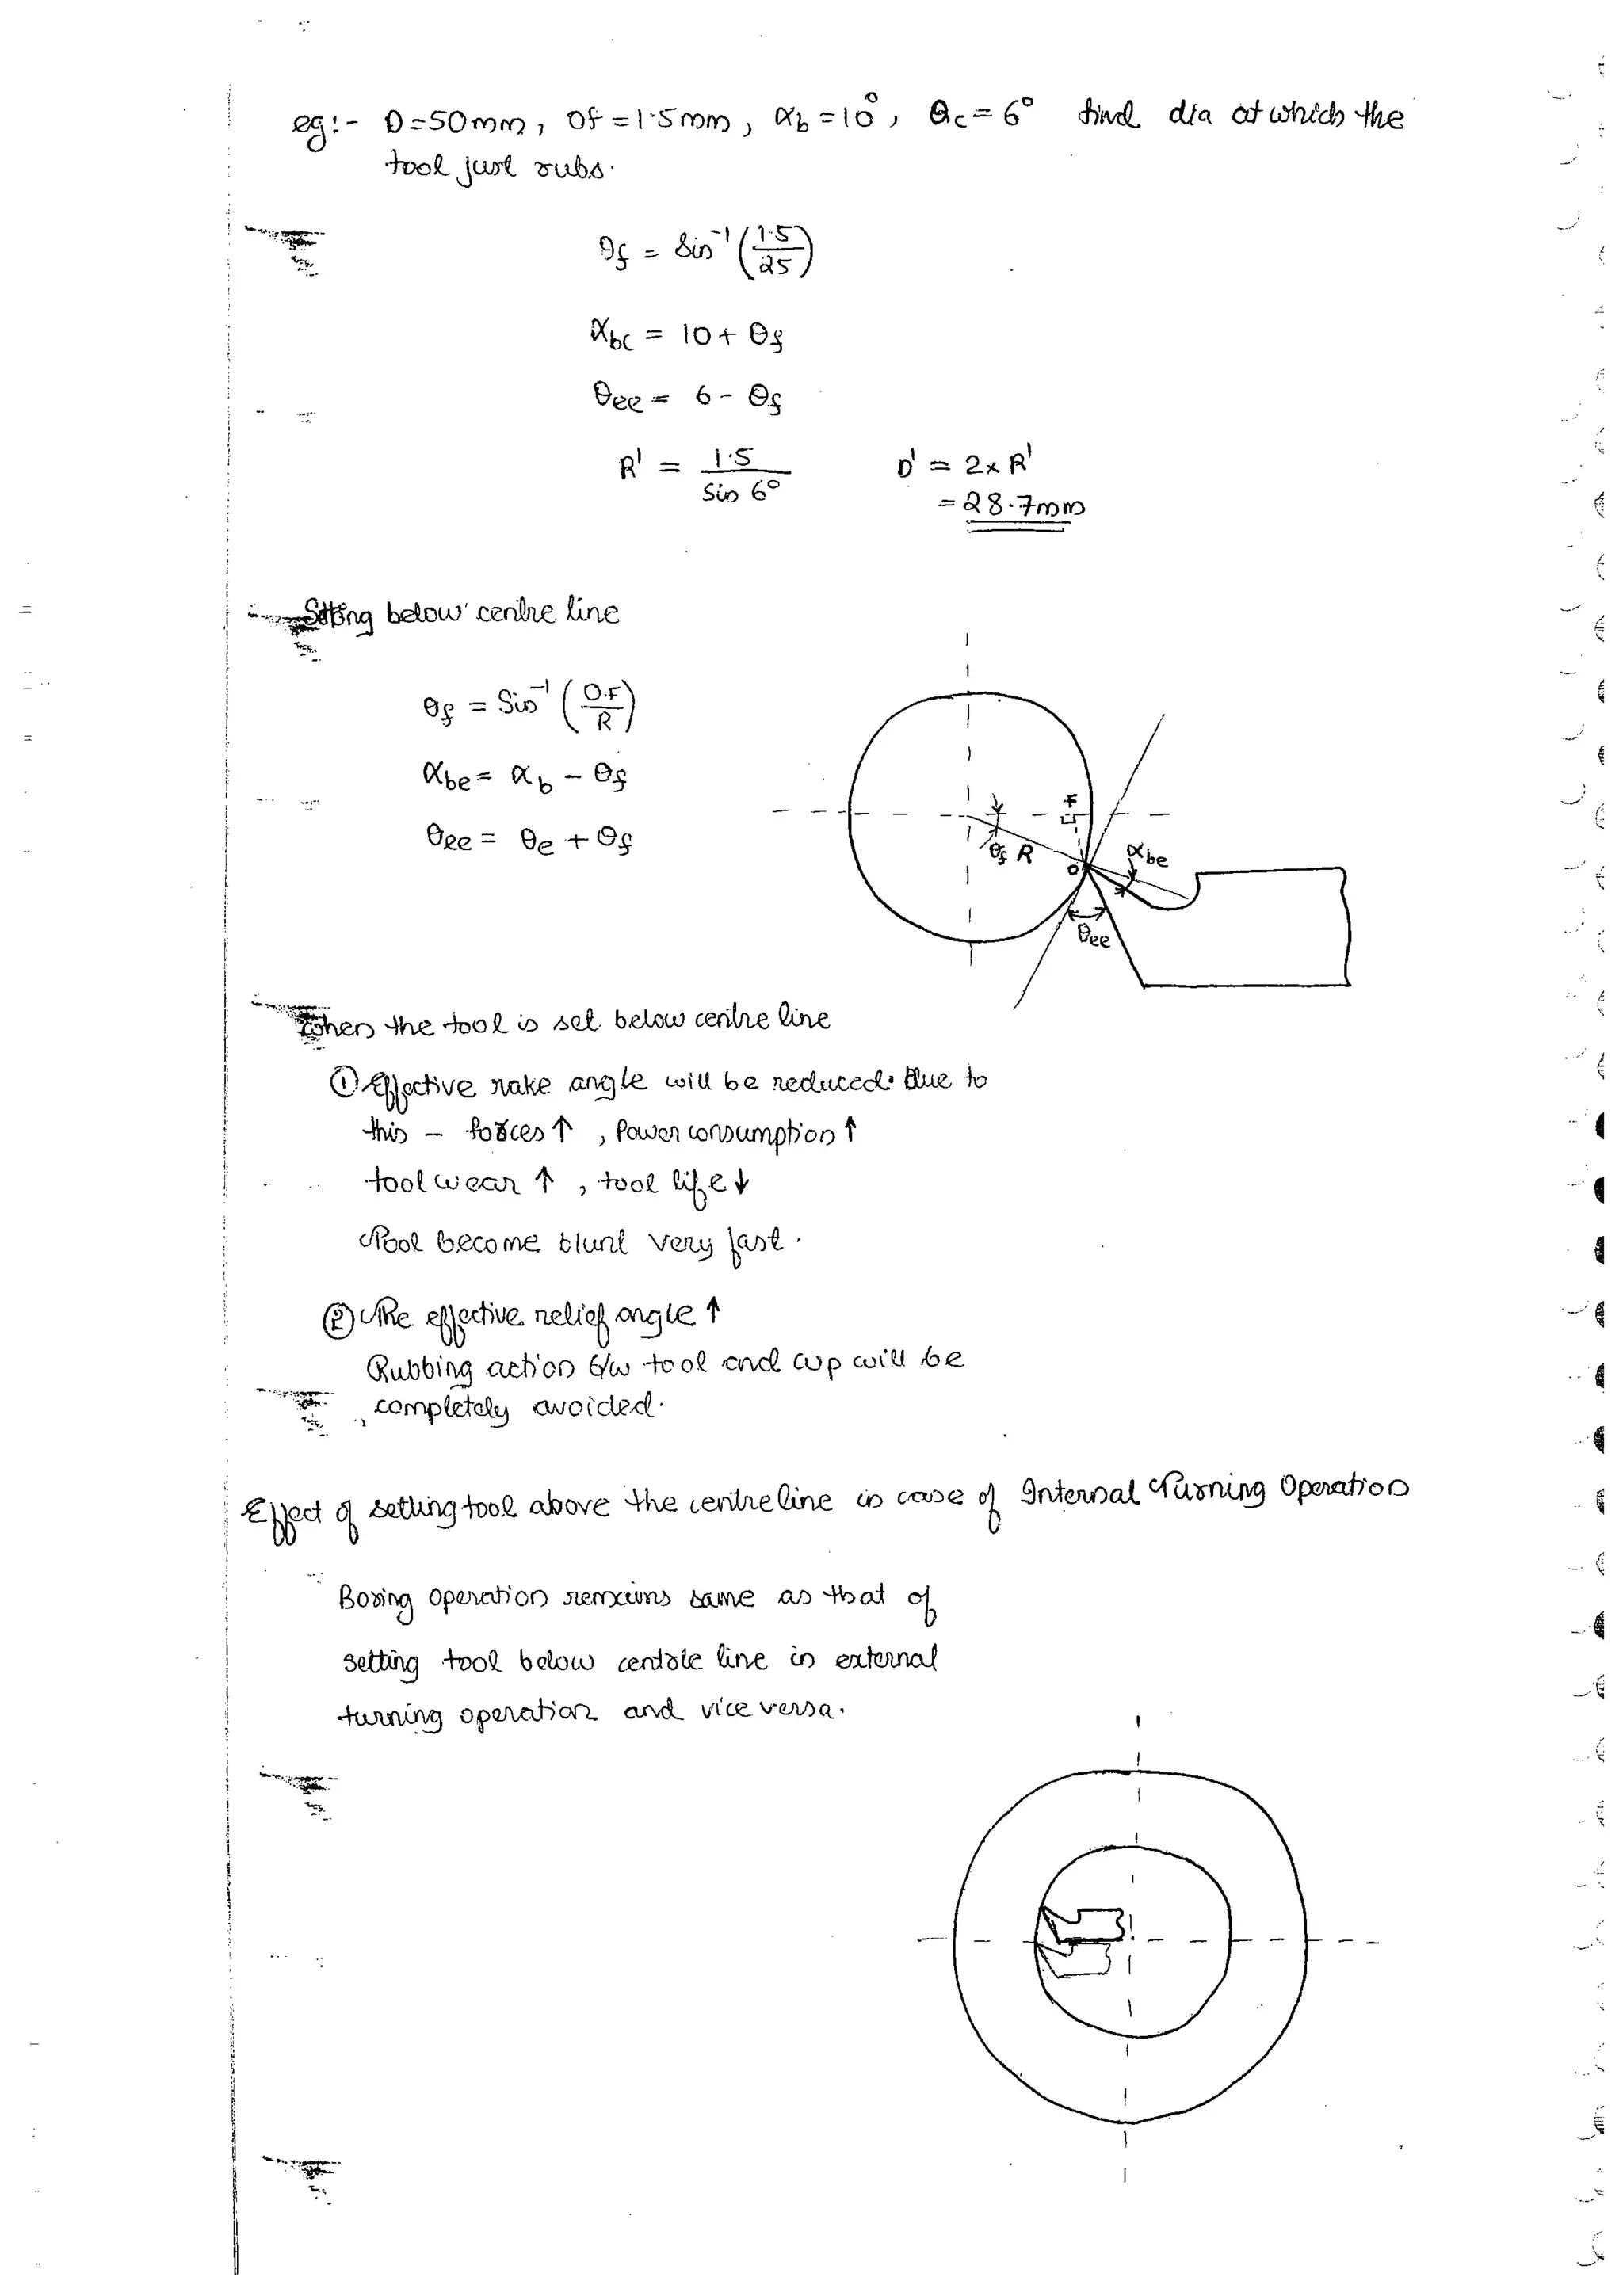 eg:- D=50mm, Of=1.5mm, αb=10°, θc=6° find dia at which the
tool just rubs.
θf = Sin⁻¹(1.5/25)
αbc = 10 + θf
θee = 6 - θf
R' = 1.5/Sin 6°    D' = 2×R'
= 28.7mm
Setting below centre line
θf = Sin⁻¹(O.F/R)
αbe = αb - θf
θee = θe + θf
F
θf R
O
αbe
θee
When the tool is set below centre line
① Effective rake angle will be reduced. Due to
this - forces ↑, Power consumption ↑
tool wear ↑, tool life ↓
Tool become blunt very fast.
② The effective relief angle ↑
Rubbing action b/w tool and w/p will be
completely avoided.
Effect of setting tool above the centre line in case of Internal Turning Operation
Boring operation remains same as that of
setting tool below centre line in external
turning operation and vice versa.